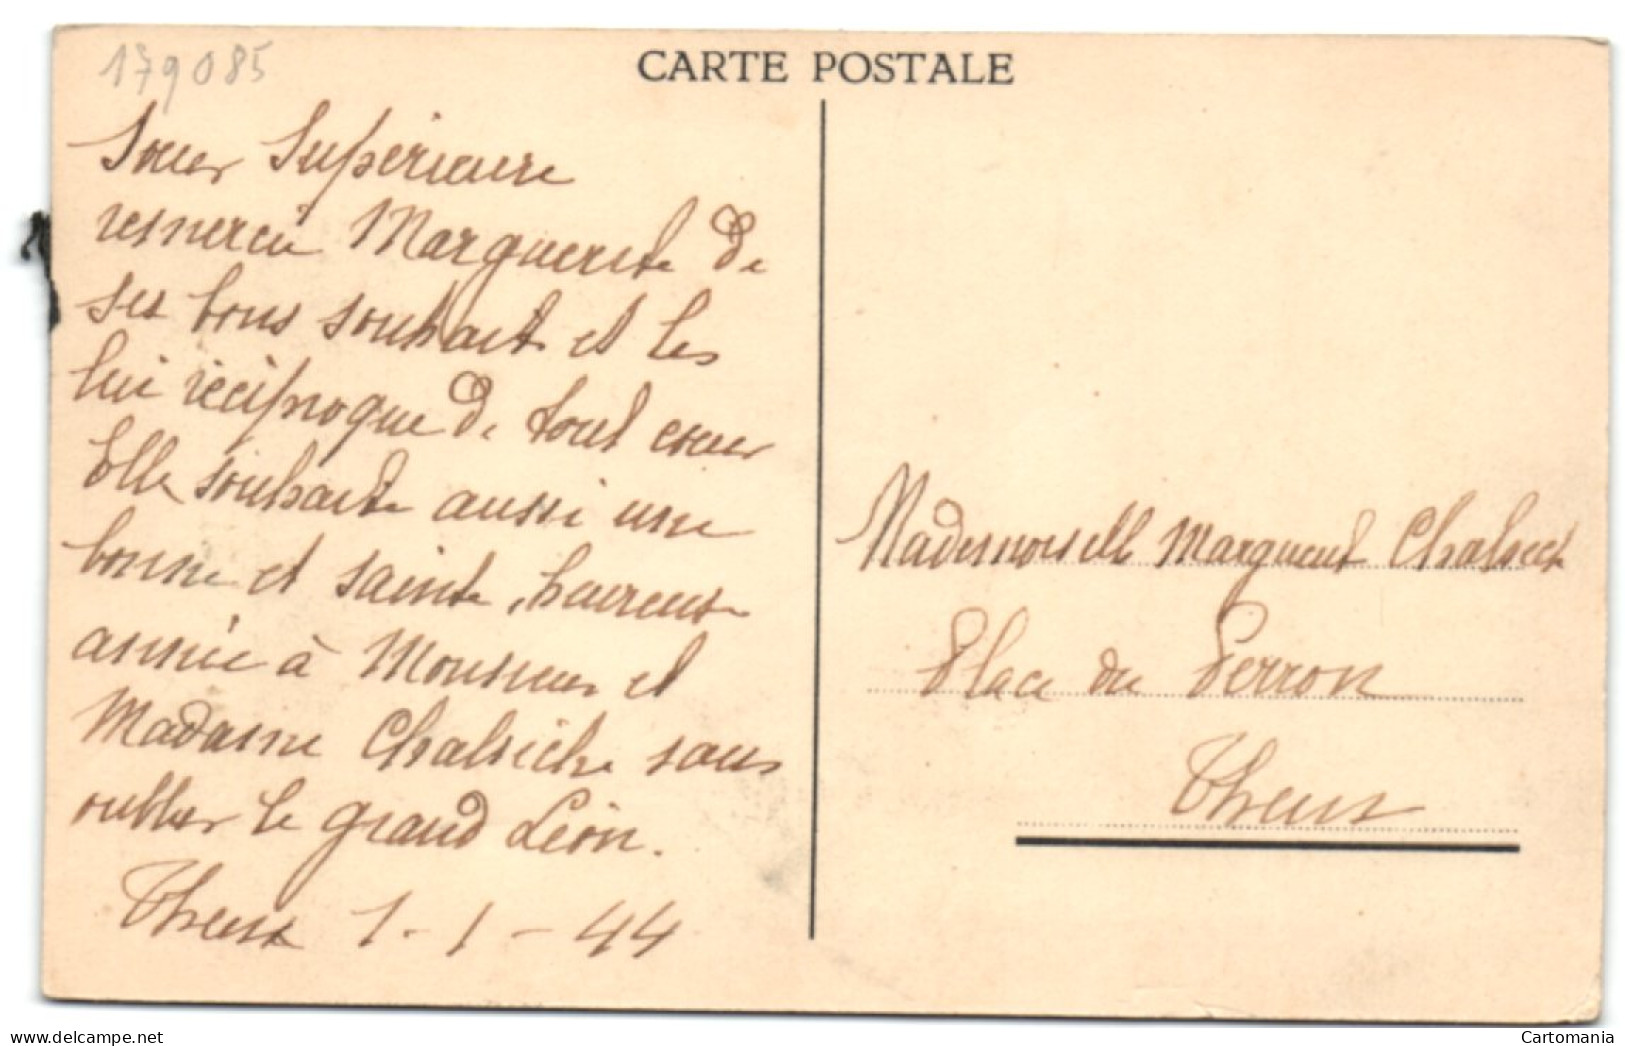 179085
CARTE POSTALE
Soeur Supérieure
remercie Marguerite de
ses bons souhait et les
lui réciproque de tout coeur
Elle souhaite aussi une
bonne et sainte, heureuse
année à Monsieur et
Madame Chalsèche sans
oublier le grand Léon.
Theux 1-1-44
Mademoiselle Marguerit Chalsèch
Place du Perron
Theux
delcampe.net
Cartomania